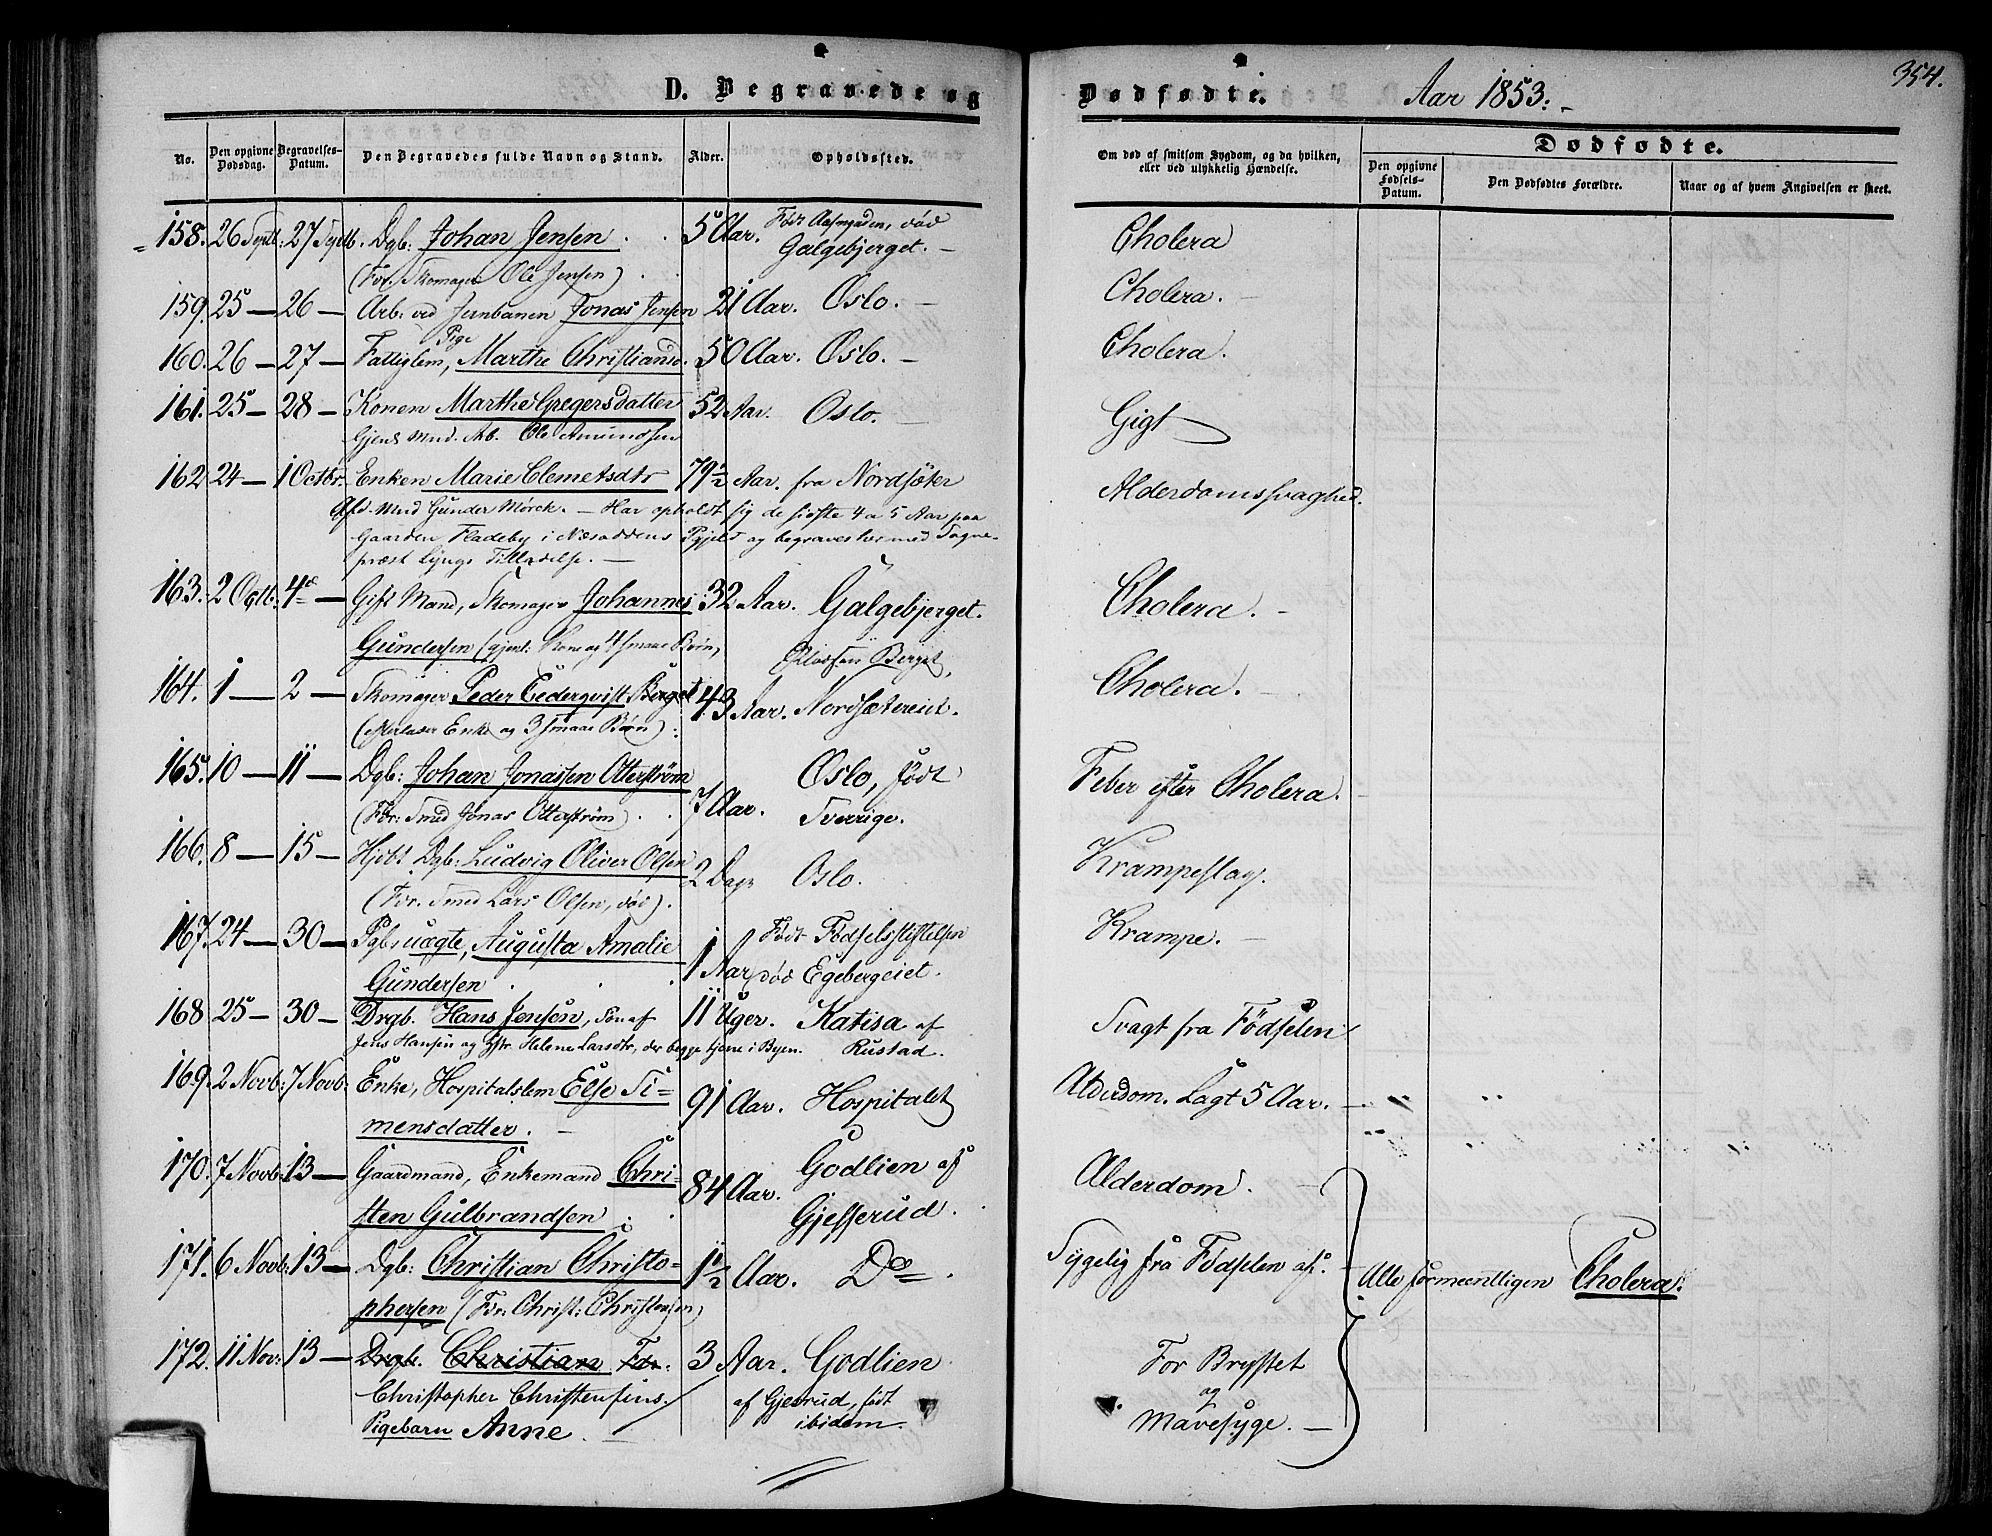 D. Begravede og Dødfødte. Aar 1853. 354.
No. Den opgivne Dødsdag. Begravelses-Datum. Den Begravedes fulde Navn og Stand. Alder. Opholdssted. Om død af smitsom Sygdom, og da hvilken, eller ved ulykkelig Hændelse. Dødfødte.
Den opgivne Fødsels-Datum. Den Dødfødtes Forældre. Naar og af hvem Angivelsen er skeet.
158. 26 Septb: 27 Septb. Dgb: Johan Jensen 5 Aar. Født Aasengaden, død Galgebjerget. Cholera
(For. Skomager Ole Jensen)
159. 25 — 26 — Arb: ved Jernbanen Jonas Jensen 21 Aar. Oslo. Cholera.
160. 26 — 27 — Fattiglem, Pige Marthe Christiansd. 50 Aar. Oslo. Cholera.
161. 25 — 28 — Konen Marthe Gregersdatter 52 Aar. Oslo. Gigt
Gjenl. Mnd. Arb. Ole Amundsen
162 24 — 1 Octbr. Enken Marie Clemetsdtr 79½ Aar. fra Nordsæter Alderdomssvaghed.
Afd. Mnd Gunder Mørck. — Har opholdt sig de sidste 4 a 5 Aar paa
Gaarden Fladeby i Næsoddens Pgjeld og begraves her med Sogne-
præst Lyngs Tilladelse. —
163. 2 Octb: 4de — Gift Mand, Skomager Johannes 32 Aar. Galgebjerget. Cholera.
Gundersen (gjenl: Kone og 4 smaae Børn)
164. 1 — 2 — Skomager Peder Cederqvist Berget 43 Aar. Berget, Nordsætereiet. Cholera.
(efterlader Enke og 3 smaae Børn).
165. 10 — 11 — Dgb: Johan Jonassen Otterstrøm 7 Aar. Oslo, født Sverrige. Feber efter Cholera.
(For: Smed Jonas Otterstrøm)
166. 8 — 15 — Hjdbt Dgb: Ludvig Oliver Olsen 2 Dage Oslo. Krampeslag.
(For. Smed Lars Olsen, død).
167. 24 — 30 — Pgb: uægte, Augusta Amalie 1 Aar Født Fødselsstiftelsen død Egebergeiet. Krampe.
Gundersen
168 25 — 30 — Drgb. Hans Jensen, Søn af 11 Uger. Katisa af Rustad. Svagt fra Fødselen
Jens Hansen og Helene Larsdtr, der begge tjene i Byen.
169. 2 Novb: 7 Novb: Enke, Hospitalslem Else Si- 91 Aar. Hospitalet Alderdom. Lagt 5 Aar. —
mensdatter.
170. 7 Novb: 13 — Gaardmand, Enkemand Chri- 84 Aar. Godlien af Gjesserud. Alderdom.
sten Gulbrandsen
171. 6 Novb: 13 — Dgb: Christian Christo- 1½ Aar. Do Sygelig fra Fødselen af. Alle formeentligen Cholera.
phersen (For: Christ: Christensen)
172. 11 Nov: 13 — Drgb. Christian For: 3 Aar. Godlien af Gjesrud, født ibidem. For Brystet og Mavesyge. —
Christopher Christensens
Pigebarn Anne